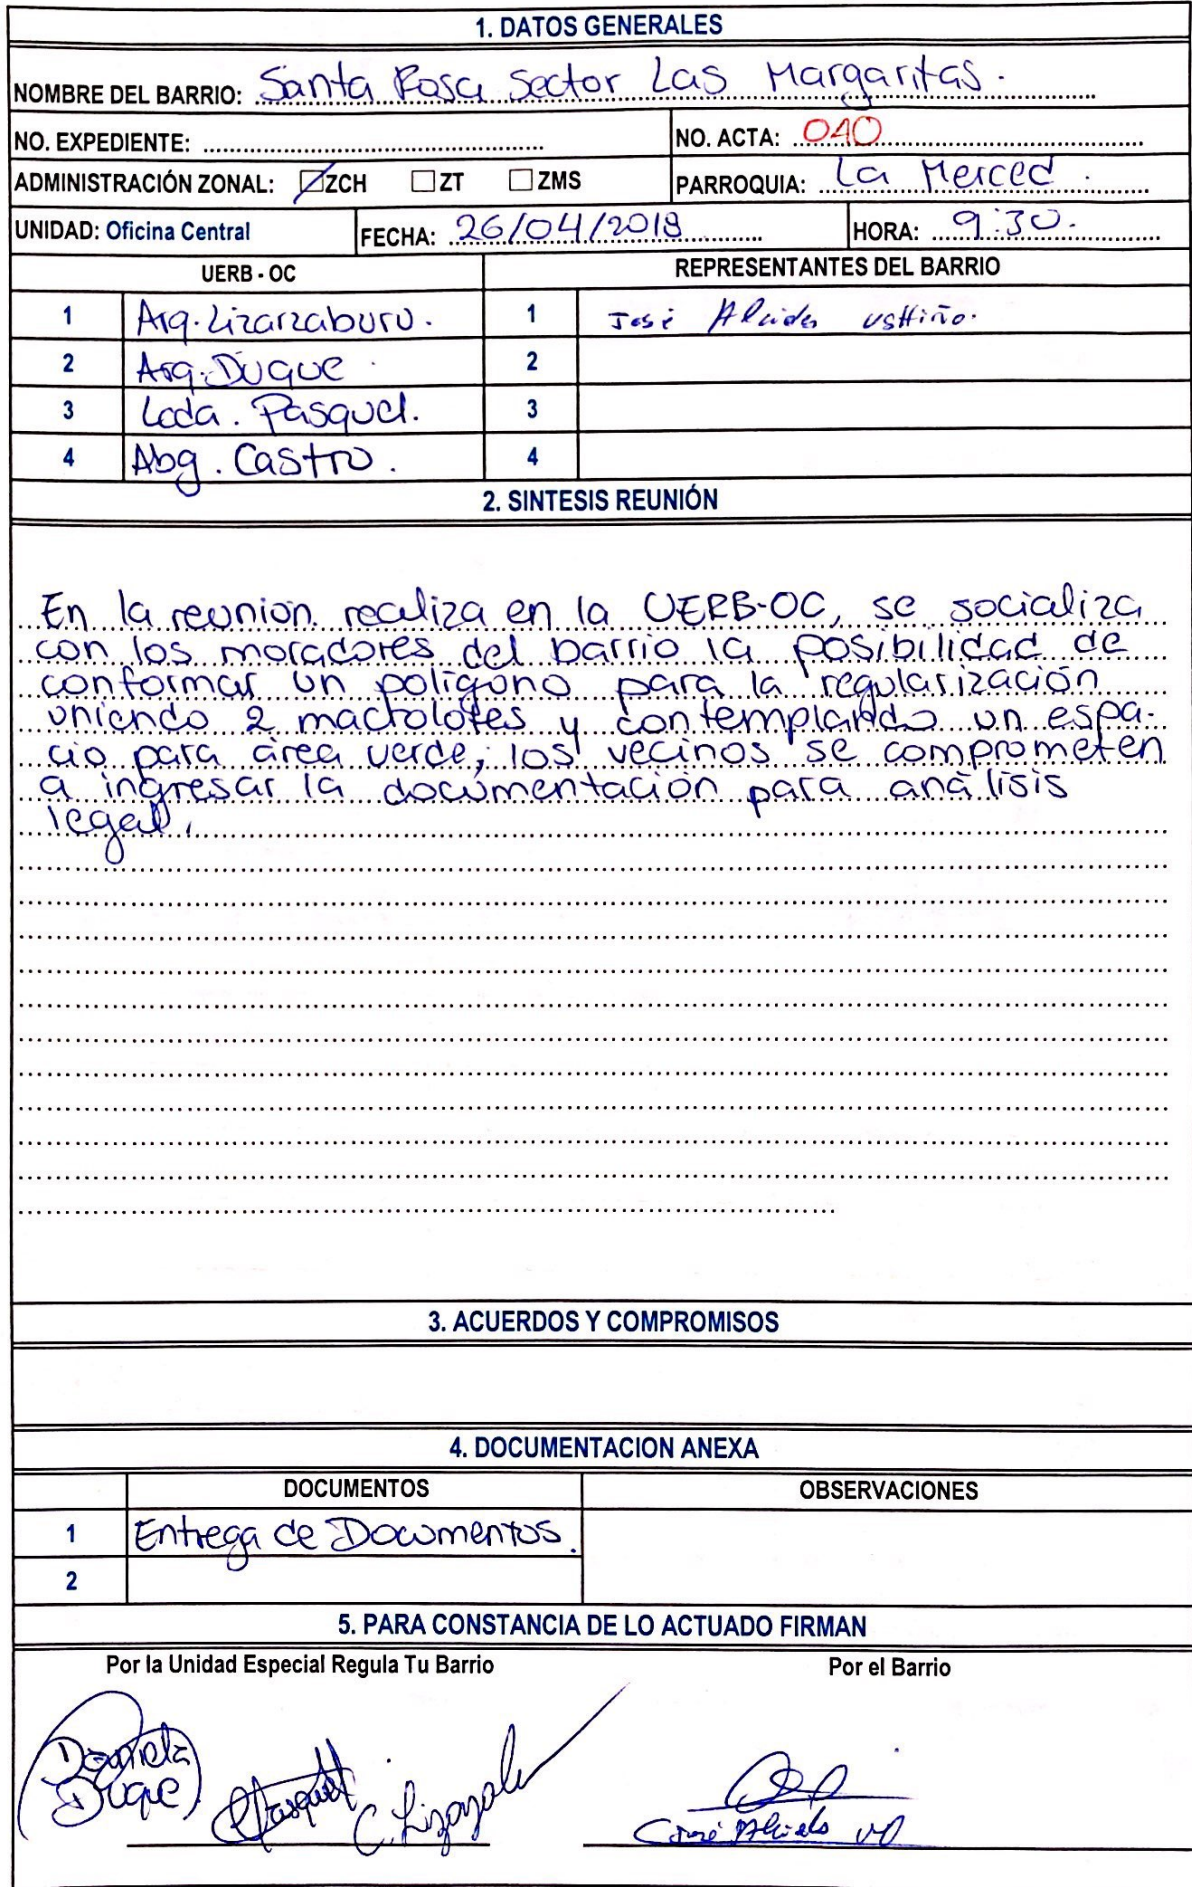 1. DATOS GENERALES
NOMBRE DEL BARRIO: Santa Rosa Sector Las Margaritas.
NO. EXPEDIENTE:
NO. ACTA: 040
ADMINISTRACIÓN ZONAL: ☑ZCH ☐ZT ☐ZMS
PARROQUIA: La Merced.
UNIDAD: Oficina Central FECHA: 26/04/2018 HORA: 9:30.
UERB - OC REPRESENTANTES DEL BARRIO
1 Arq. Lizarzaburu. 1 José Alcides
2 Arq. Duque. 2
3 Lcda. Pasquel. 3
4 Abg. Castro. 4
2. SINTESIS REUNIÓN
En la reunión realiza en la UERB-OC, se socializa
con los moradores del barrio la posibilidad de
conformar un polígono para la regularización
uniendo 2 macrolotes y contemplando un espa-
cio para área verde, los vecinos se comprometen
a ingresar la documentación para análisis
legal.
3. ACUERDOS Y COMPROMISOS
4. DOCUMENTACION ANEXA
DOCUMENTOS OBSERVACIONES
1 Entrega de Documentos.
2
5. PARA CONSTANCIA DE LO ACTUADO FIRMAN
Por la Unidad Especial Regula Tu Barrio Por el Barrio
Daniela
Duque CPasquel C. Lizarzabu
José Alcides